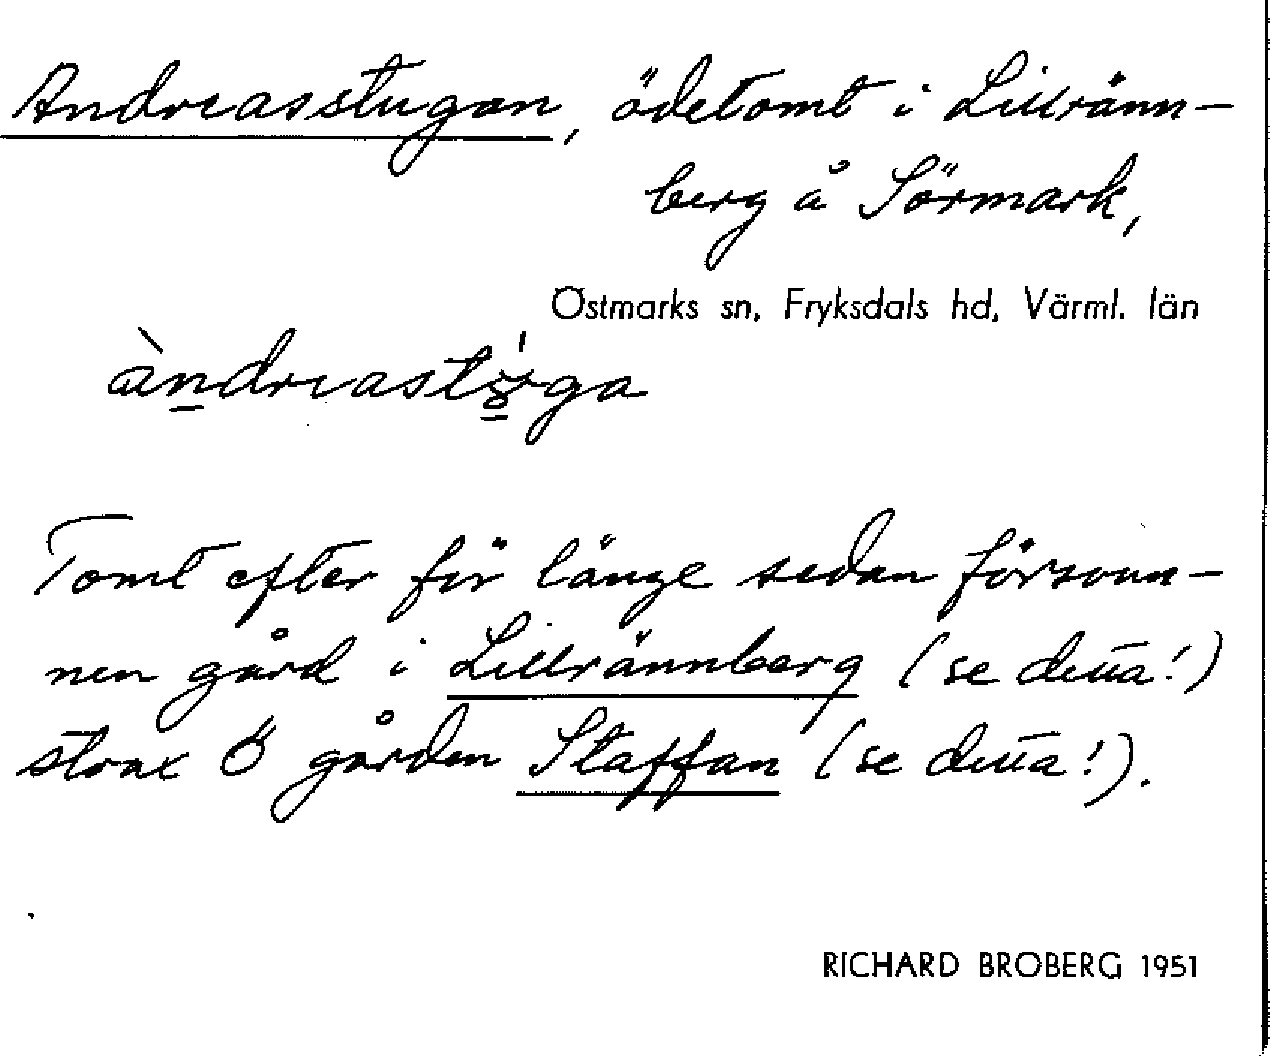 Andreasstugan, ödetomt i Lillränn-
berg å Sörmark,
Östmarks sn, Fryksdals hd, Värml. län
Tomt efter för länge sedan försvun-
nen gård i Lillrännberg (se detta!)
strax Ö gården Staffan (se detta!).
RICHARD BROBERG 1951